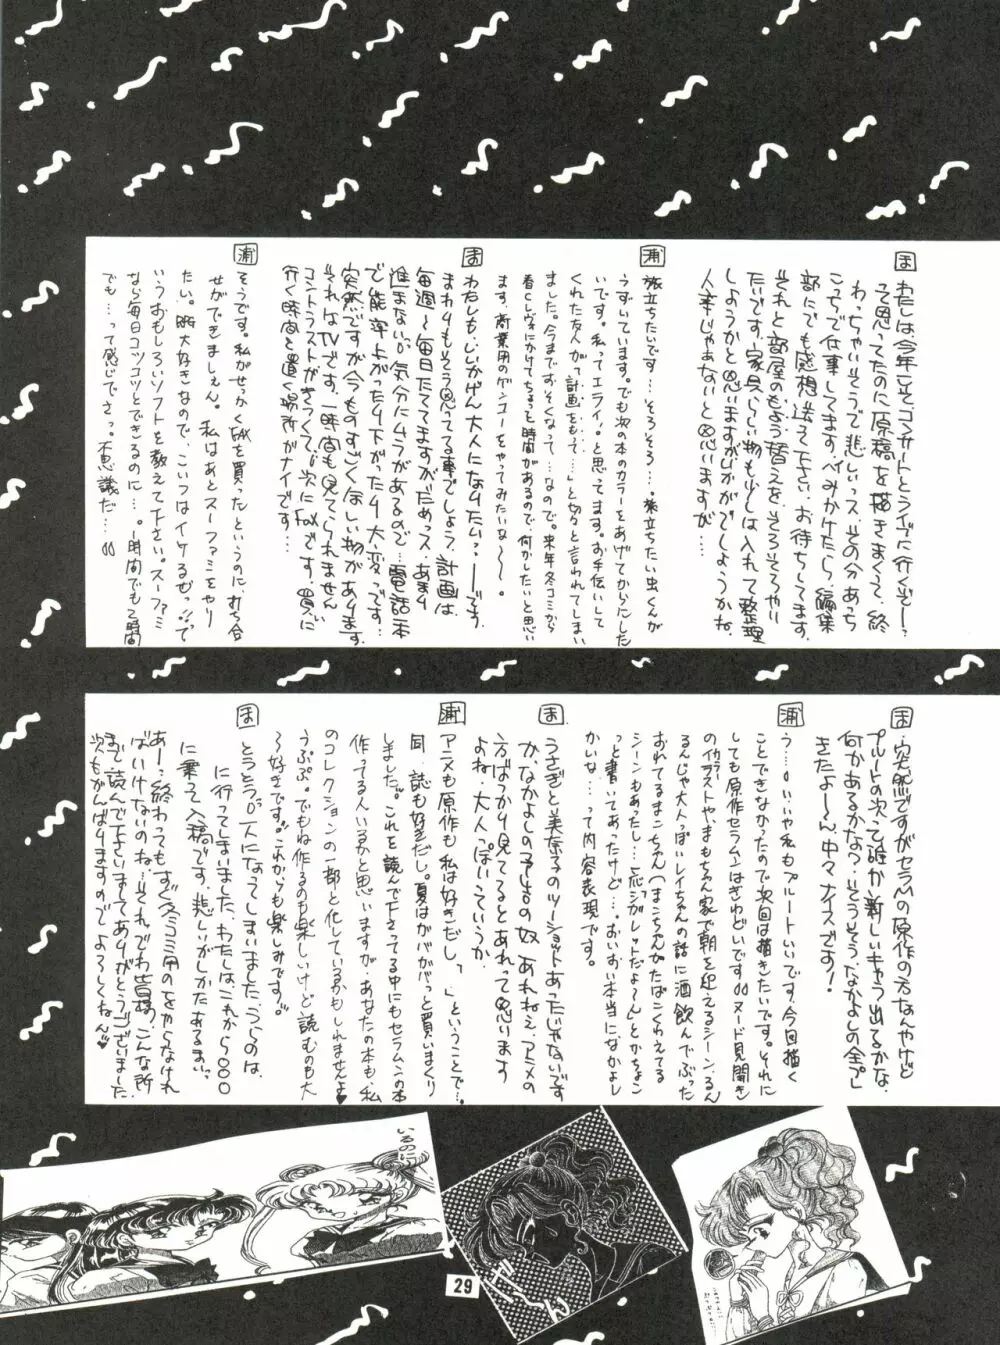 ま
わたしは今年こそコンサートとライブに行くぞー?
って思ってたのに原稿を描きまくって、終
わっちゃいそうで悲しいっス…その分あっち
こっちで仕事してます。ペイみかけたら、編集
部にでも感想送って下さい。お待ちしてます。
それと部屋のもよう替えを、そろそろやり
たいです。家具らしい物も少しは入れて整理
しようかと思いますがいかがでしょうかね。
人事じゃぁないと思いますが…
浦
旅立ちたいです…そろそろ…。旅立ちたい虫くんが
うずいています。でも次の本のカラーをあげてからにした
いです。私ってエライ!と思ってます。お手伝いして
くれた友人が「計画をもって…」と切ると言われてしまい
ました。今まですごくなって…なので。来年冬コミから
春C.レヴォにかけてちょっと時間があるので、何かしたいと思い
ます。商業用のゲンコーをやってみたいな〜〜。
ま
わたしも、いいかげん大人になりたい?——です。
まわりもそう思ってる事でしょう。計画は
毎週〜毎日たててますがだめっス。あまり
進まない。気分にムラがあるので…電話一本
で能率上がったり下がったり大変っです…
突然ですが今ものすごくほしい物があります。
それはTVです。一時間も見てられません
コントラストがきつくて。次にFAXです。買いに
行く時間と置く場所がナイです…
浦
そうです。私がせっかくFAXを買ったというのに、打ち合
せができましぇん。私はあとスーファミをやり
たい。脳大好きなので、こいつはイケるぜっ!!って
いうおもしろいソフトを教えて下さい。スーファミ
なら毎日コツコツとできるのに…。一時間でも2時間
でも…って感じでさっ。不思議だ…。
ま
突然ですがセラムンの原作の方なんやけど
プルートの次って誰か新しいキャラ出るかな、
何かあるかな?…そうそう、なかよしの全プレ
きたよ〜ん、中々ナイスです!
浦
う…いいや私もプルートいいです。今回描く
ことできなかったので次回は描きたいです。それに
しても原作セラムンはきわどいです。ヌード見開き
のイラストや、まもちゃん家で朝を迎えるシーン、るん
るんじゃ大人っぽいレイちゃんの話に酒飲んでぶった
おれてるまこちゃん(まこちゃんがたばこくわえてる
シーンもあったし…)応シガレットだよ〜んとかちょこ
っと書いてあったけど…。おいおい本当になかよし
かいな…って内容表現です。
ま
うさぎと美奈子のツーショットあったじゃないです
か、なかよしの予告の奴、あれねぇ、アニメの
方ばっかり見てるとあれって思います
よね、大人っぽいっていうか。
浦
アニメも原作も私は好きだし。」ということで…。
同誌も好きだし。夏はガバガバっと買いまくり
しました。これを読んで下さってる中にもセラムンの本
作ってる人いるかと思いますが、あなたの本も、私
のコレクションの一部と化しているかもしれませんよ♥
うぷぷ。でもね作るのも楽しいけど読むのも大
〜好きです。これからも楽しみです。
ま
とうとう一人になってしまいました…うらのは、
に行ってしまいました。わたしはこれから○○○
に乗って入稿です。悲しいがしかたあるまい。
あー?終わってもすぐ冬コミ用のをやらなければ
ばいけないのね…それでわ皆様、こんな所
まで読んで下さいましてありがとうございました。
次もがんばりますのでよろしくねん♥
いるのに
29